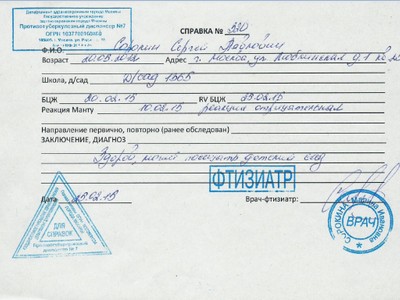 Департамент здравоохранения города Москвы
Государственное учреждение
здравоохранения города Москвы
Противотуберкулезный диспансер №7
ОГРН
СПРАВКА № 380
Ф.И.О. Сорокин Сергей Павлович
Возраст 20.03.2012 Адрес г. Москва, ул. д. 1
Школа, д/сад Д/сад 1565
БЦЖ 20.02.15 RV БЦЖ 25.02.15
Реакция Манту 10.02.15 реакция отрицательная
Направление первично, повторно (ранее обследован)
ЗАКЛЮЧЕНИЕ, ДИАГНОЗ
Здоров, может посещать детский сад
ФТИЗИАТР
Дата 15.02.15 Врач-фтизиатр:
ДЛЯ
СПРАВОК
СОРОКИНА Марина Ивановна
ВРАЧ